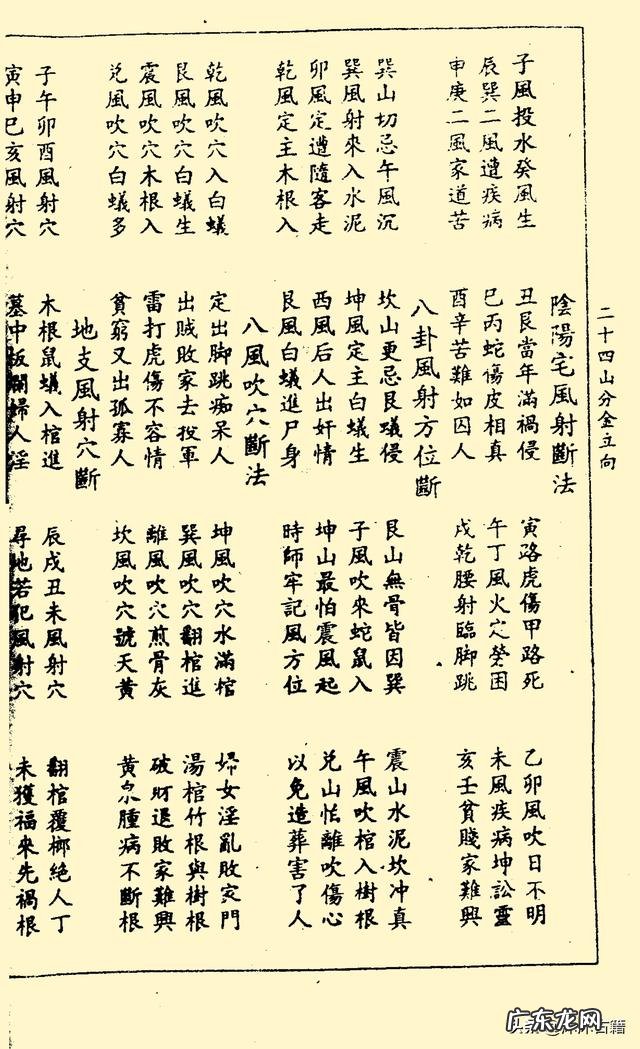 二十四山分金立向
陰陽宅風射斷法
子風投水癸風生 丑艮當年滿禍侵 寅路虎傷甲路死 乙卯風吹日不明
辰巽二風遭疾病 巳丙蛇傷皮相真 午丁風火定勞困 未風疾病坤訟靈
申庚二風家道苦 酉辛苦難如囚人 戌乾腰射臨脚跳 亥壬貧賤家難興
八卦風射方位斷
巽山切忌午風沉 坎山更忌艮蟻侵 艮山無骨皆因巽 震山水泥坎冲真
巽風射來入水泥 坤風定主白蟻生 子風吹來蛇鼠入 午風吹棺入樹根
卯風定遭隨客走 西風后人出奸情 坤山最怕震風起 兌山怕離吹傷心
乾風定主木根入 艮風白蟻進尸身 時師牢記風方位 以免造葬害了人
八風吹穴斷法
乾風吹穴入白蟻 定出脚跳痴呆人 坤風吹穴水滿棺 婦女淫亂敗家門
艮風吹穴白蟻生 出賊敗家去投軍 巽風吹穴翻棺進 湯棺竹根與樹根
震風吹穴木根入 雷打虎傷不容情 離風吹穴煎骨灰 破財退敗家難興
兌風吹穴白蟻多 貧窮又出孤寡人 坎風吹穴號天黃 黃泉腫病不斷根
地支風射穴斷
子午卯酉風射穴 木根鼠蟻入棺進 辰戌丑未風射穴 翻棺覆槨絕人丁
寅申巳亥風射穴 墓中板爛婦人淫 尋地若犯風射穴 未獲福來先禍根
广东龙网
古籍